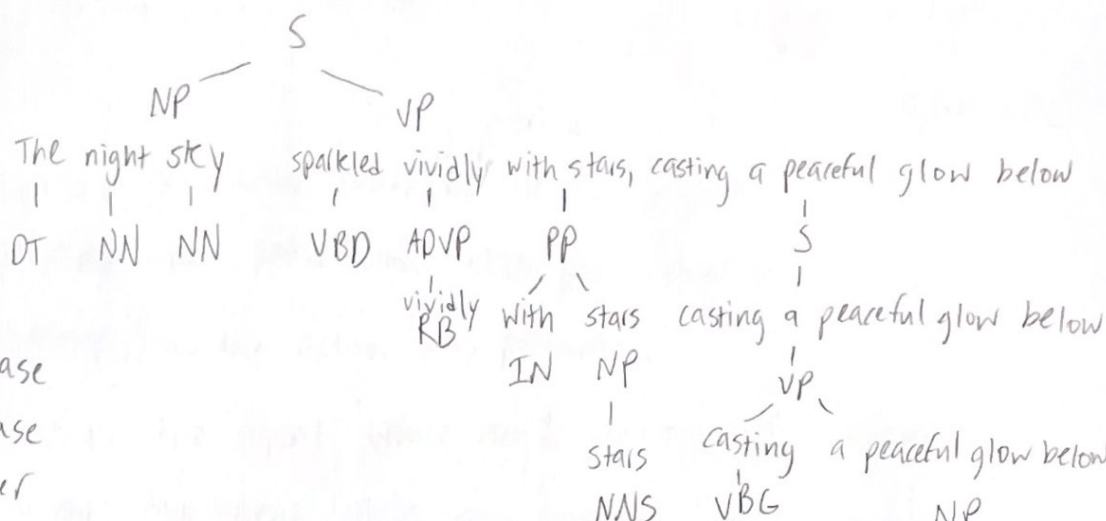 S
NP VP
The night sky sparkled vividly with stars, casting a peaceful glow below
DT NN NN VBD ADVP PP S
vividly with stars casting a peaceful glow below
RB IN NP VP
ase
ase
stars casting a peaceful glow below
er
NNS VBG NP